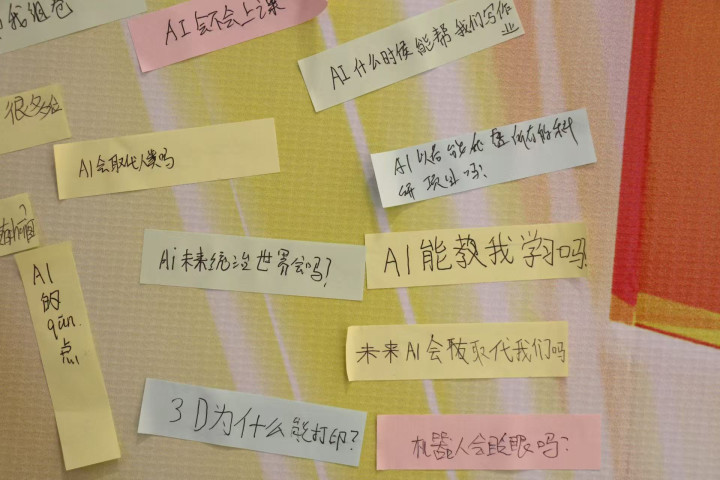 我组卷
AI会不会上课
AI什么时候能帮我们写作
业
很多
AI会取代人类吗
AI以后能代替所有的科
研项业吗?
?
AI
的
qūn
点
Ai未来统治世界会吗?
AI能教我学习吗
未来AI会被取代我们吗
3D为什么能打印?
机器人会眨眼吗?